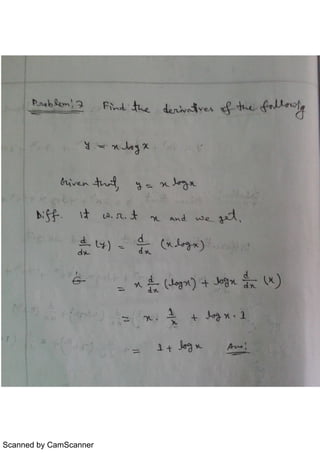 Problem: 2 Find the derivatives of the following
y = x log x
Given that, y = x log x
Diff. it w.r.t x and we get,
d/dx (y) = d/dx (x.log x)
= x d/dx (log x) + log x d/dx (x)
= x. 1/x + log x . 1
= 1 + log x Ans:
Scanned by CamScanner